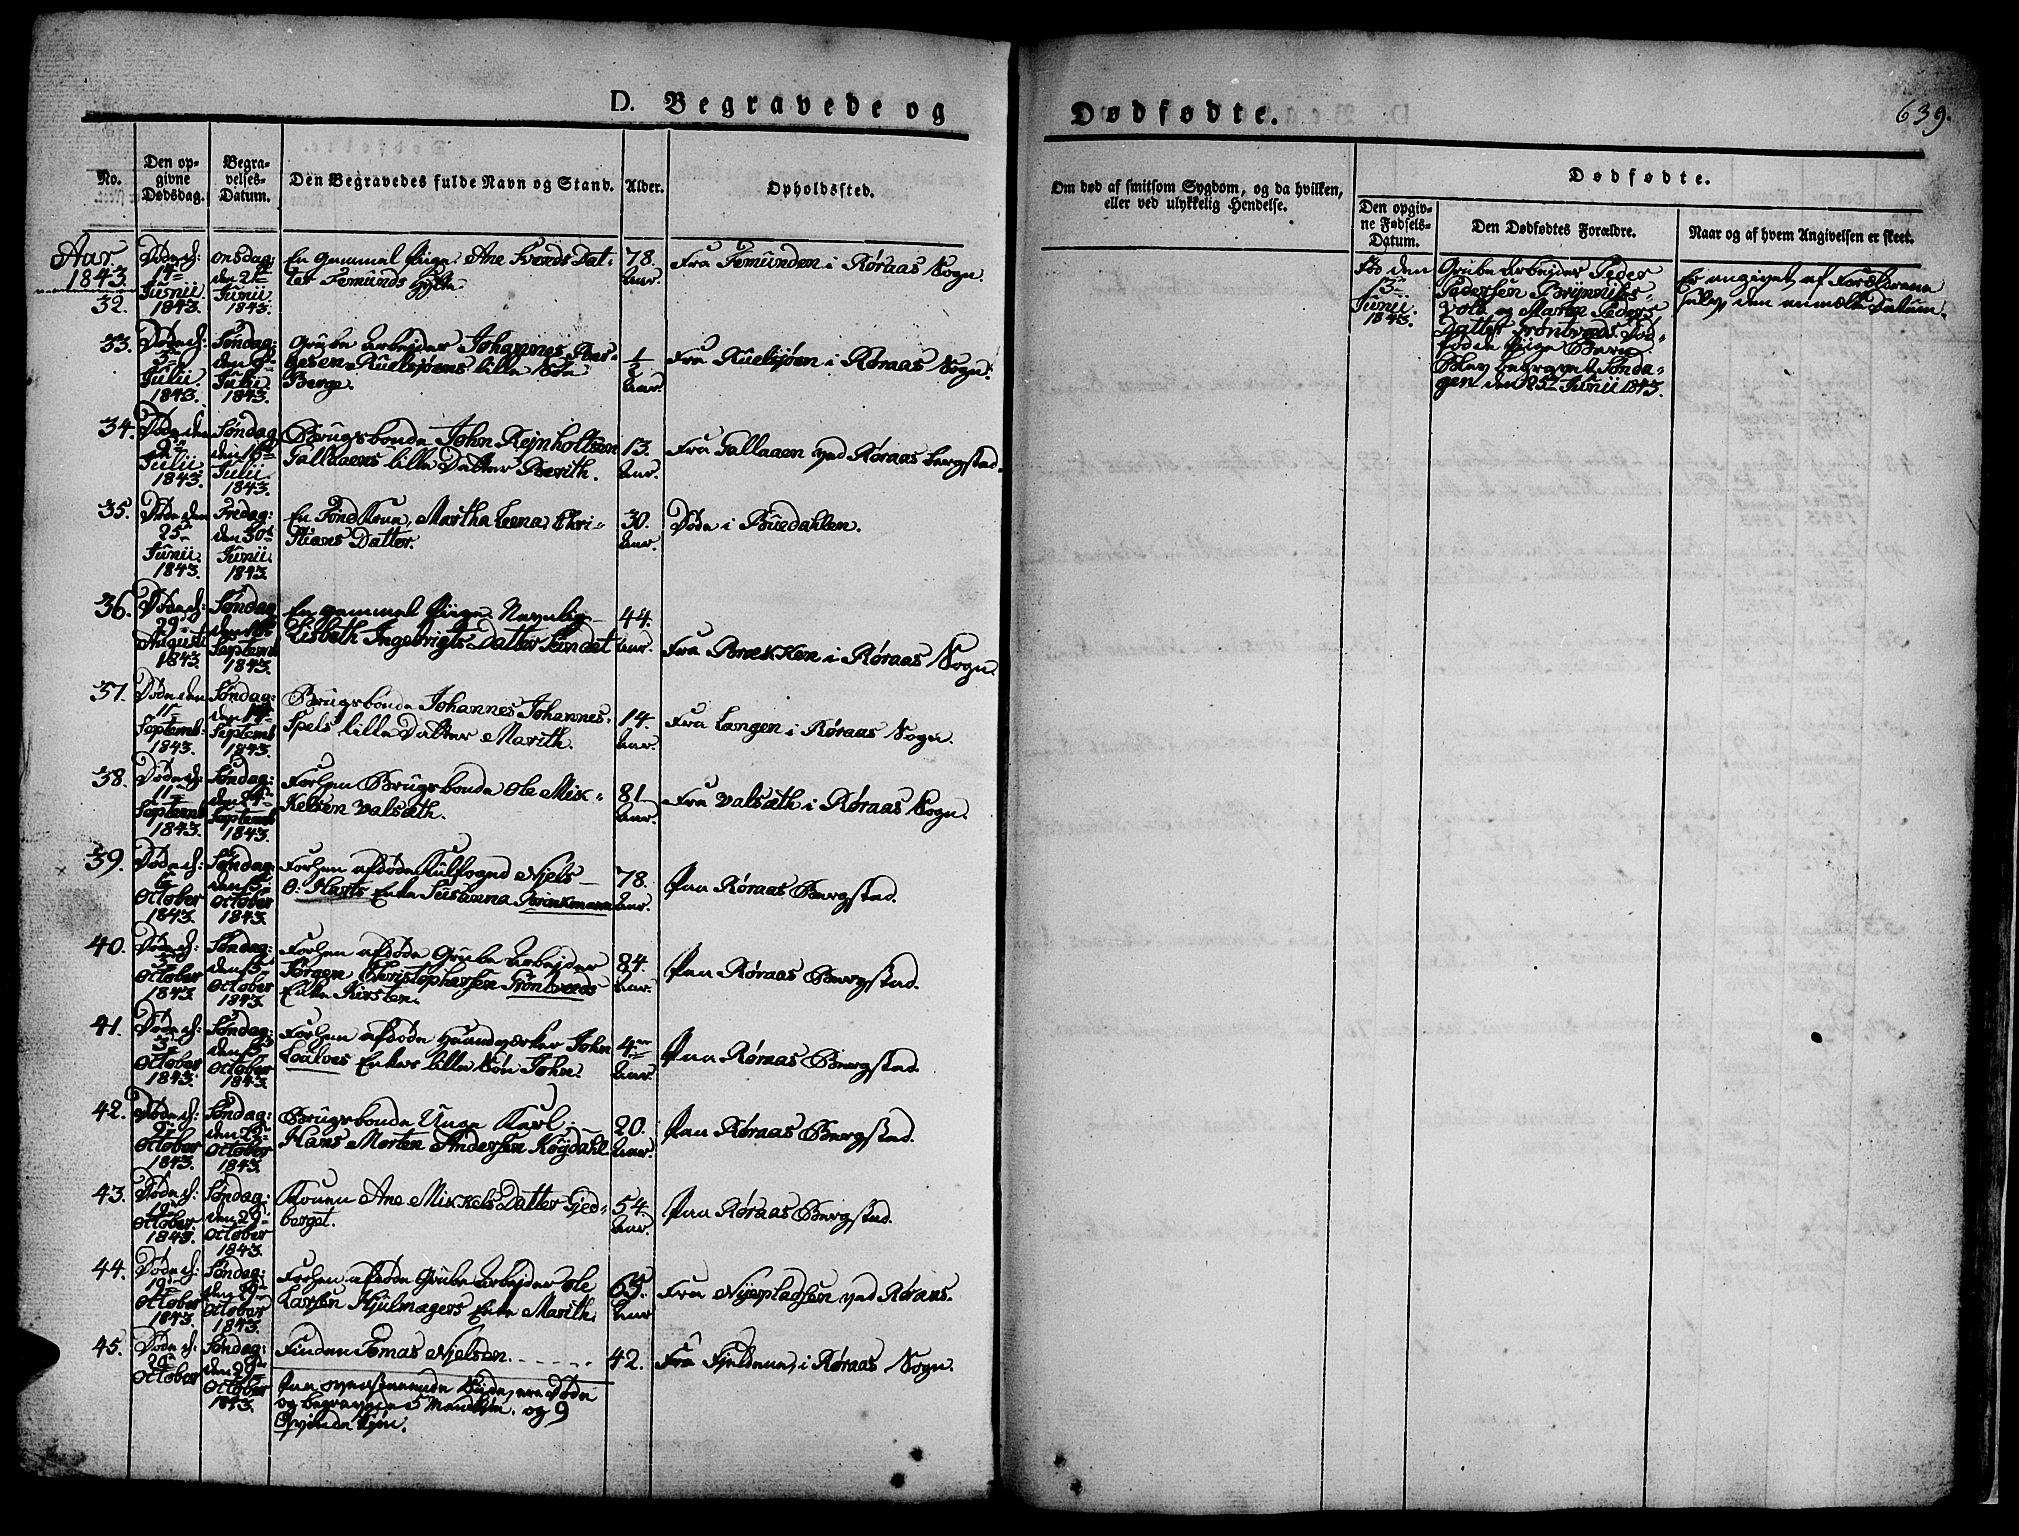 D. Begravede og
Dødfødte.
639.
No.
Den op-
givne
Dødsdag.
Begra-
velses-
Datum.
Den Begravedes fulde Navn og Stand.
Alder.
Opholdssted.
Om død af smitsom Sygdom, og da hvilken,
eller ved ulykkelig Hendelse.
Dødfødte.
Den opgiv-
ne Fødsels-
Datum.
Den Dødfødtes Forældre.
Naar og af hvem Angivelsen er skeet.
Aar
1843.
32.
Døde d:
14-
Junii
1843.
Onsdag:
den 21de
Junii
1843.
En gammel Piige Ane Svends Dat-
ter Femunds Hytte.
78.
Aar.
Fra Femunden i Røraas Sogn.
33.
Døde d:
3-
Julii
1843.
Søndag:
den 9-
Julii
1843.
Grube Arbejder Johannes
Kuelsjøens lille Søn
Berge.
1/2
Aar.
Fra Kuelsjøen i Røraas Sogn.
34.
Døde den
2-
Julii
1843.
Søndag
den 16de
Julii
1843.
Brugsbonde John Rejnholtsen
Gallaaens lille Datter Berith.
13.
Aar.
Fra Gallaaen ved Røraas Bergstad.
35.
Døde den
25-
Junii
1843.
Fredag:
den 30te
Junii
1843.
En Kone, Martha Lena Chri-
stians Datter.
30.
Aar.
Døde i Buedahlen.
36.
Døde d:
29-
Augusti
1843.
Søndag
den
Septemb
1843.
En gammel Piige Navnlig
Lisbeth Ingebrigts Datter
44.
Aar.
Fra Brækken i Røraas Sogn
37.
Døde den
11-
Septemb-
1843.
Søndag:
den 17-
Septemb
1843.
Brugsbonde Johannes Johannes-
Spels lille Datter Marith.
14.
Aar.
Fra Langen i Røraas Sogn.
38.
Døde d:
11-
Septemb
1843.
Søndag:
den 24-
Septemb
1843.
Forhen Brugsbonde Ole Mik-
kelsen Valsæth.
81.
Aar.
Fra Valsæth i Røraas Sogn.
39.
Døde d:
6-
October
1843.
Søndag:
den 15-
October
1843.
Forhen afdøde Kulfoged Niels
O: Harts Enke Susanna Brinkmann
78.
Aar.
Paa Røraas Bergstad.
40.
Døde d:
5-
October
1843.
Søndag:
den 15-
October
1843.
Forhen afdøde Grube Arbejder
Jørgen Christophersen Trøntveds
Enke Kirsten.
84.
Aar.
Paa Røraas Bergstad.
41.
Døde d:
3-
October
1843.
Søndag:
den 15-
October
1843.
Forhen afdøde Haandværker John
Enkes lille Søn John.
4-
Aar.
Paa Røraas Bergstad.
42.
Døde d:
October
1843.
Søndag:
den
October
1843.
Brugsbonde Unge Karl
Hans Morten Andersen Køgdahl
20.
Aar.
Paa Røraas Bergstad.
43.
Døde d:
19-
October
1843.
Søndag:
den 29-
October
1843.
Konen Ane Mikkels Datter Gjed-
berget.
54.
Aar.
Paa Røraas Bergstad.
44.
Døde d:
19-
October
1843.
Søndag:
den 29-
October
1843.
Forhen afdøde Grube Arbejder Ole
Larsen Hjulmagers Enke Marith.
65.
Aar
Fra Nyepladsen ved Røraas.
45.
Døde d:
October
Søndag:
den 29-
October
1843.
Finden Tomas Nielsen.
42.
Fra Fjeldene, i Røraas Sogn.
Paa ovenstaaende Side, ere Døde
og begravede 5 Mandkjøn. og 9
Qvindekjøn.
Fød den
13-
Junii
1843.
Grube Arbejder Peder
Pedersen Brynnils-
vold og Maren Peders
Datter Trøntveds Død-
fødde Piige Barn
Blev begravet Sønda-
gen den 25- Junii 1843.
Er angivet af Forældrene
selv, den anmelte Datum.